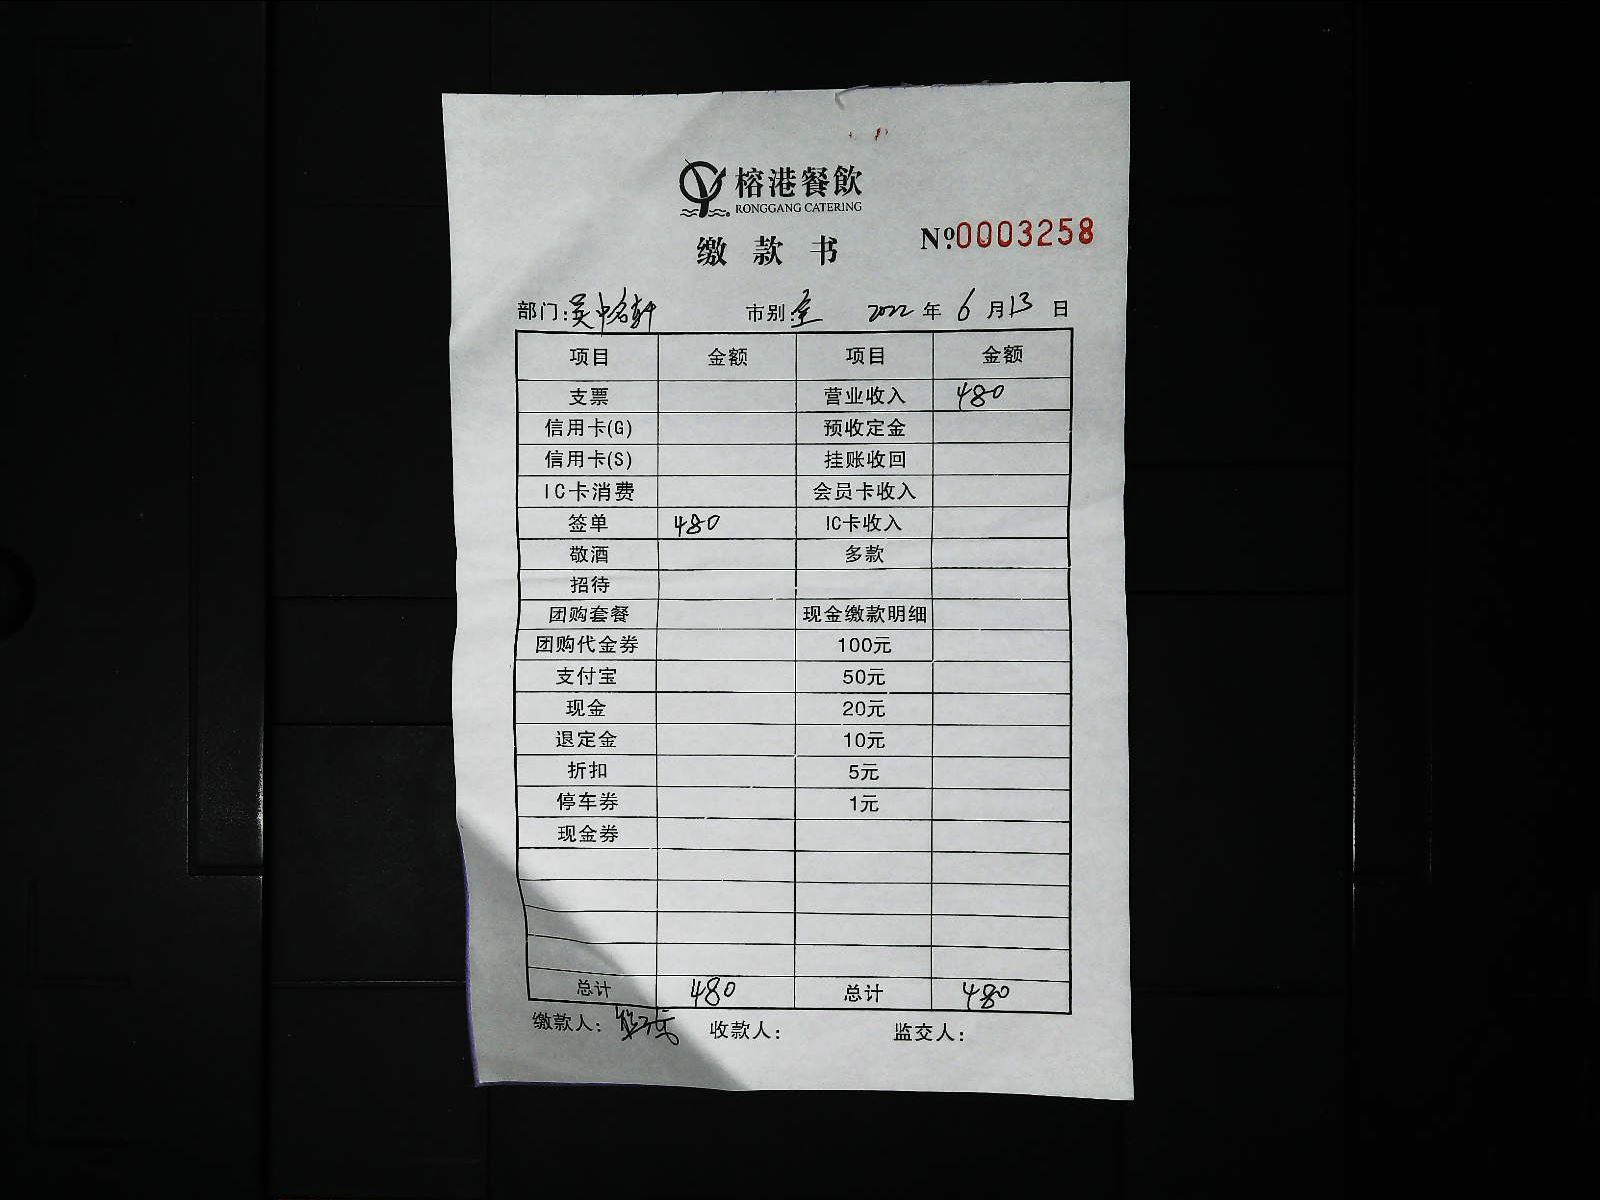 榕港餐飲
RONGGANG CATERING
缴款书
№0003258
部门:吴中名轩 市别: 2022年6月13日
项目 金额 项目 金额
支票 营业收入 480
信用卡(G) 预收定金
信用卡(S) 挂账收回
IC卡消费 会员卡收入
签单 480 IC卡收入
敬酒 多款
招待
团购套餐 现金缴款明细
团购代金券 100元
支付宝 50元
现金 20元
退定金 10元
折扣 5元
停车券 1元
现金券
总计 480 总计 480
缴款人: 收款人: 监交人: